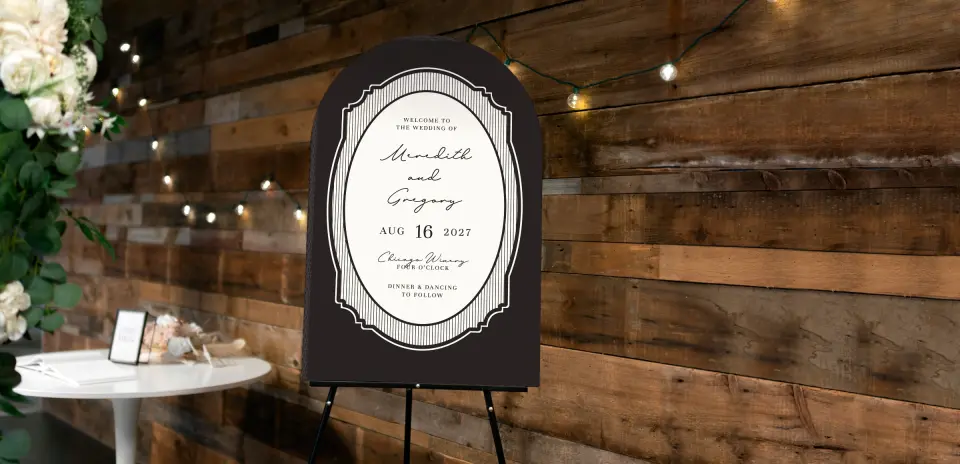 WELCOME TO
THE WEDDING OF
Meredith
and
Gregory
AUG 16 2027
Chicago Winery
FOUR O'CLOCK
DINNER & DANCING
TO FOLLOW